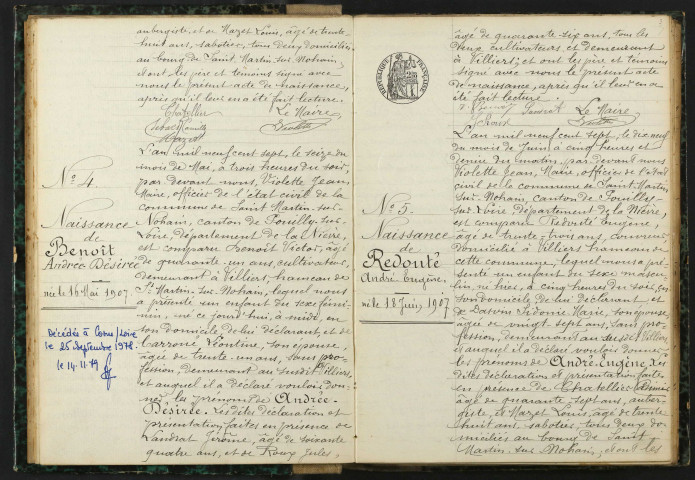 aubergiste, et de Mazet Louis, âgé de trente-
huit ans, sabotier, tous deux domiciliés
au bourg de Saint-Martin-sur-Nohain,
et ont les père et témoins signé avec
nous le présent acte de naissance,
après qu'il leur en a été fait lecture.
Le Maire
Mazet
L'an mil neuf cent sept, le seize du
mois de Mai, à trois heures du soir,
par devant nous, Violette Jean
Maire, officier de l'état civil de la
commune de Saint Martin-sur-
Nohain, canton de Pouilly-sur-
Loire, département de la Nièvre,
est comparu Benoît Victor, âgé
de quarante-un ans, cultivateur,
demeurant à Villiers, hameau de
St Martin-sur-Nohain, lequel nous
a présenté un enfant du sexe fémi-
nin, né ce jourd'hui, à midi, en
son domicile de lui déclarant, et de
Carroué Léontine, son épouse,
âgée de trente-un ans, sans pro-
fession, demeurant au susdit Villiers
et auquel il a déclaré vouloir don-
ner les prénoms de Andrée-
Désirée. Les dites déclaration et
présentation faites en présence de
Landrat Jérôme, âgé de soixante
quatre ans, et de Roux Jules,
N° 4.
Naissance
de
Benoît
Andrée Désirée
née le 16 Mai 1907
Décédée à Cosne/Loire
le 25 Septembre 1978.
le 14-11-79
âgé de quarante-six ans, tous les
deux cultivateurs, et demeurant
à Villiers; et ont les père et témoins
signé avec nous le présent acte
de naissance, après qu'il leur en a
été fait lecture.
Le Maire
RÉPUBLIQUE FRANÇAISE
L'an mil neuf cent sept, le dix neuf
du mois de Juin à cinq heures et
demie du matin, par devant nous
Violette Jean, Maire, officier de l'état
civil de la commune de Saint Martin
sur-Nohain, canton de Pouilly-
sur-Loire, département de la Nièvre,
est comparu Redouté Eugène,
âgé de trente-trois ans,
domicilié à Villiers hameau de
cette commune, lequel nous a pré-
senté un enfant du sexe mascu-
lin, né hier, à cinq heures du soir, en
son domicile de lui déclarant et
de Sidonie Marie, son épouse,
âgée de vingt-sept ans, sans pro-
fession, demeurant au susdit Villiers
et auquel il a déclaré vouloir donner
les prénoms de André-Eugène. Les
dites déclaration et présentation faites
en présence de Chatellier
âgé de quarante-sept ans, auber-
giste, et Mazet Louis, âgé de trente
huit ans, sabotier, tous deux do-
miciliés au bourg de Saint
Martin-sur-Nohain; et ont les
N° 5.
Naissance
de
Redouté
André Eugène,
né le 18 Juin 1907